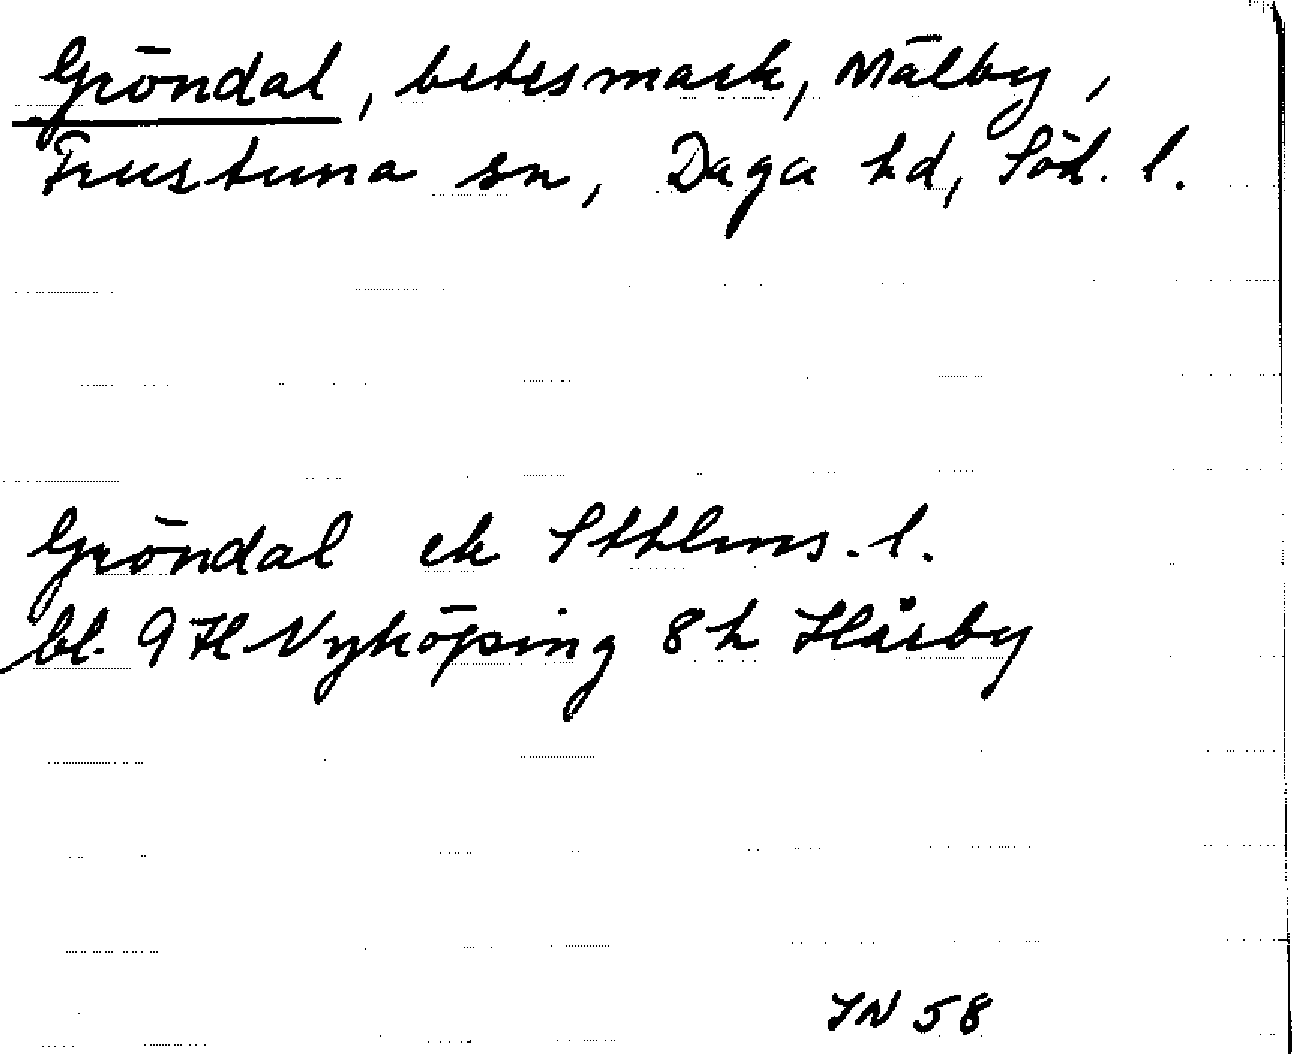 Gröndal, betesmark, Mälby,
Frustuna sn, Daga hd, Söd. l.
Gröndal ek Sthlms. l.
bl. 9 H Nyköping 8 h Hårby
IN 58